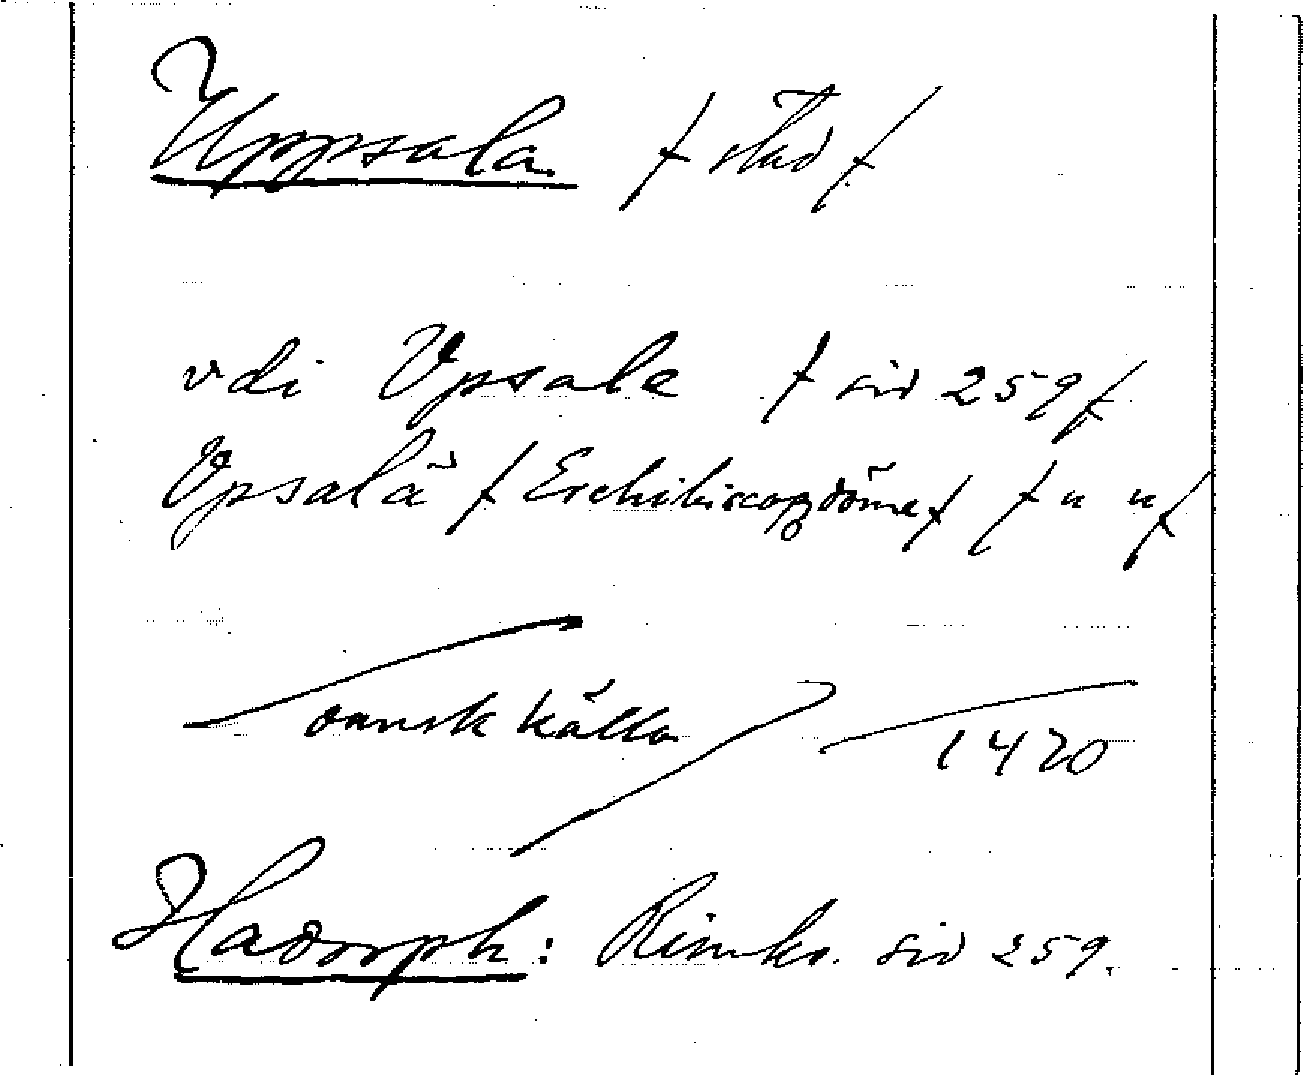 Uppsala. / stad /
vdi Vpsala / sid 259 /
Vpsalä / Erchibiscopzdöme / / " " /
dansk källa / 1420
Hadorph: Rimkr. sid 259.